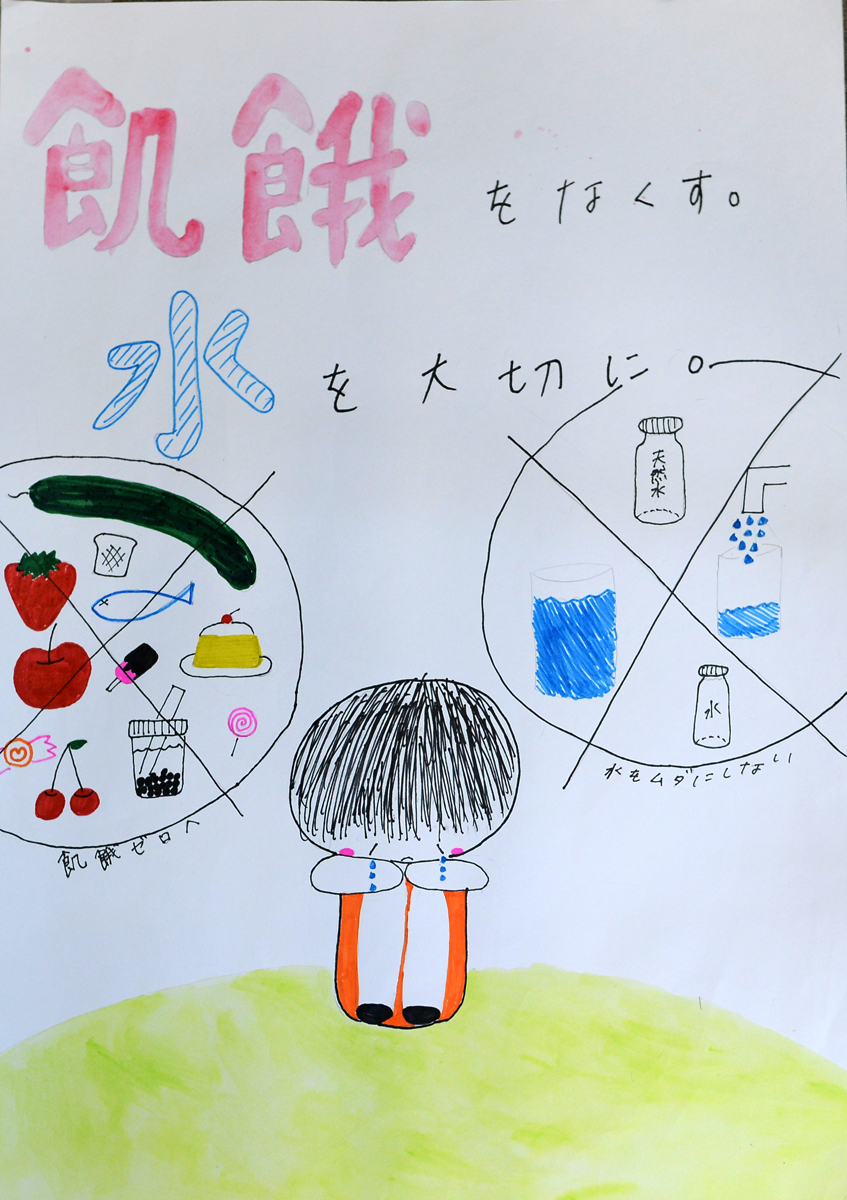 飢餓をなくす。
水を大切に。
天然水
水
水をムダにしない
飢餓ゼロへ